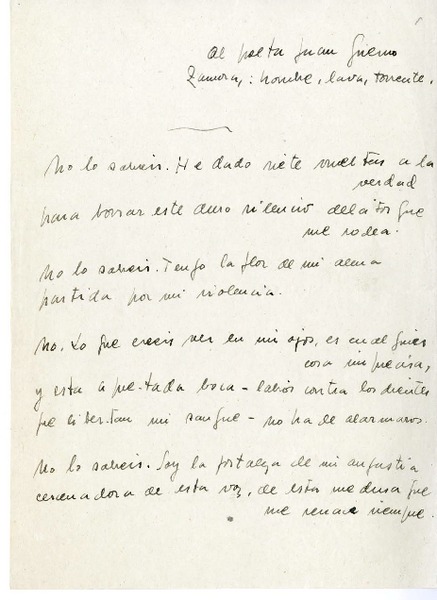 Al poeta Juan Guerrero
Zamora,: hombre, lava, torrente.
No lo sabeis. He dado siete vueltas a la
verdad
para borrar este duro silencio delator que
me rodea.
No lo sabeis. Tengo la flor de mi alma
partida por mi violencia.
No. Lo que creeis ver en mi ojos, es cual
cosa imprecisa,
y esta apretada boca - labios contra los dientes
que libertan mi sangre - no ha de alarmaros.
No lo sabeis. Soy la fortaleza de mi angustia
cercenadora de esta voz, de esta medusa que
me renace siempre.